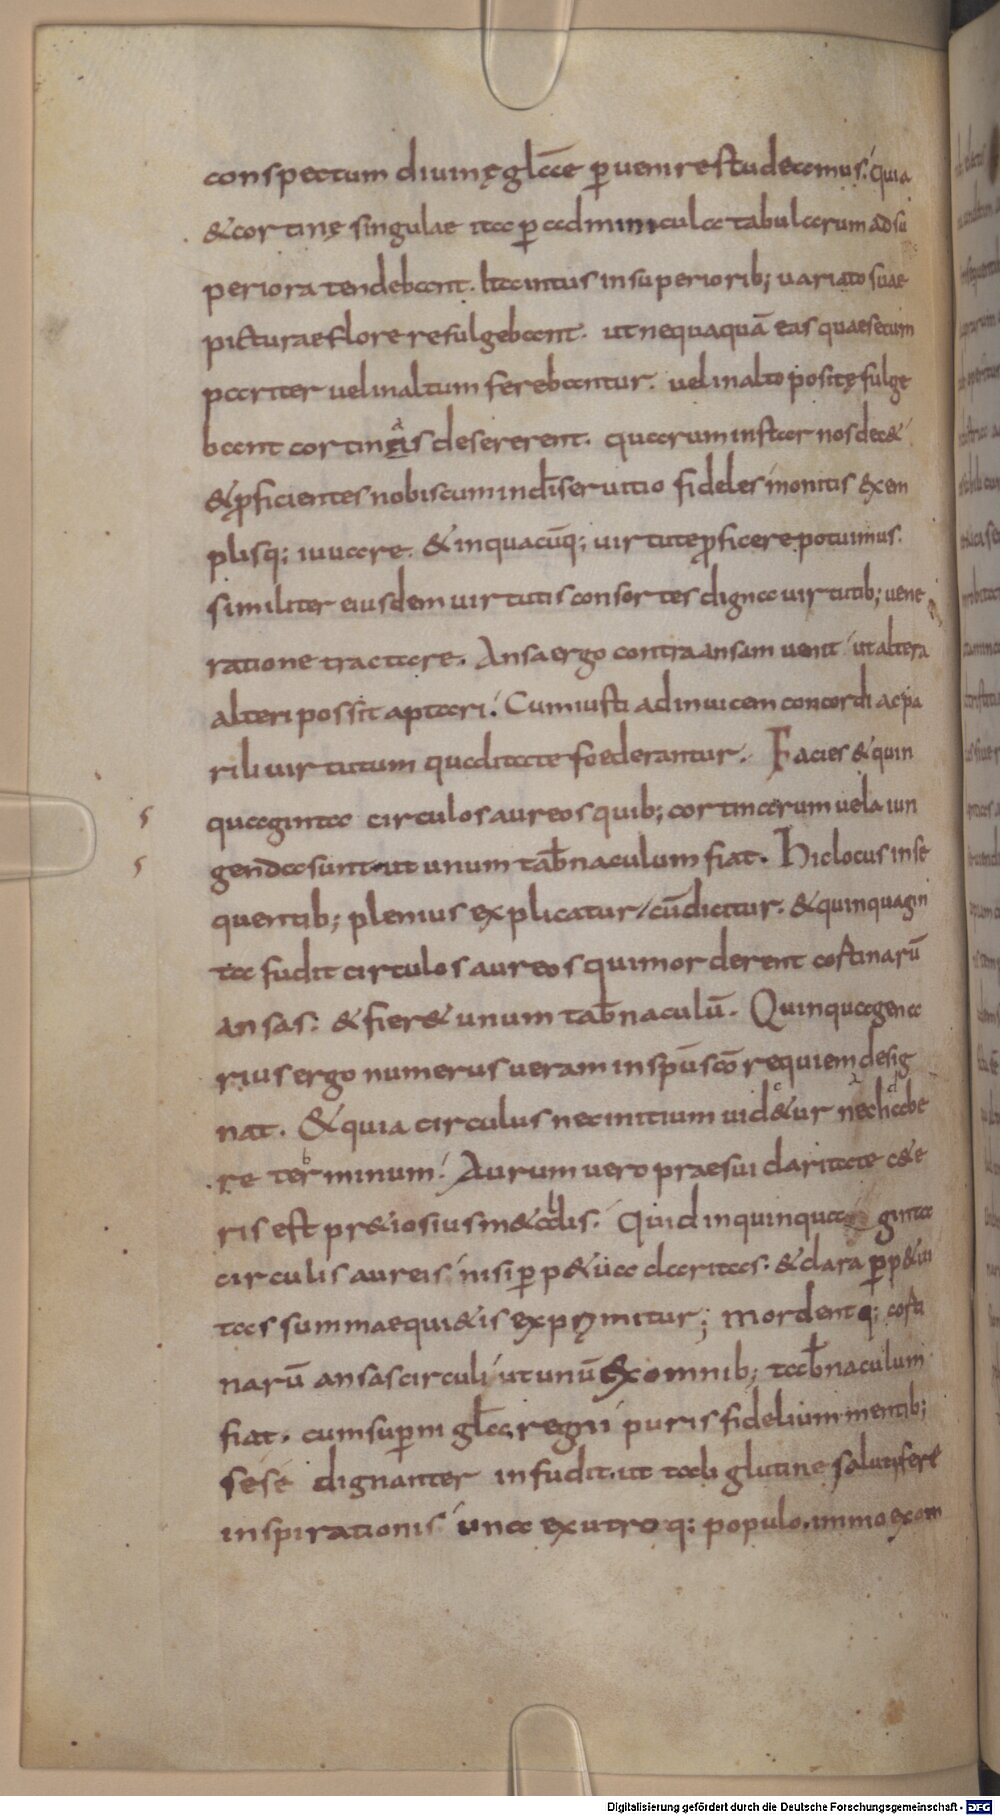 conspectum diuinę gl̄ae ꝑuenire studeamus. quia
& cortinę singulae ita ꝑ adminicula tabularum ad su
periora tendebant. ita intus in superiorib; uariato suae
picturae flore refulgebant. ut nequaquā eas quae secum
pariter uel in altum ferebantur. uel in alto positę fulge
bant cortinęis desererent. quarum instar nos dec&
& ꝓficientes nobiscum in dī seruitio fideles monitis exem
plisq; iuuare. & in quacūq; uirtute ꝓficere potuimus.
similiter eiusdem uirtutis consortes digna uirtutib; uene
ratione tractare. Ansa ergo contra ansam uenit ut altera
alteri possit aptari. Cum iusti ad inuicem concordi ac pa
rili uirtutum qualitate foederantur. Facies & quin
quaginta circulos aureos quib; cortinarum uela iun
genda sunt ut unum tab̄naculum fiat. Hic locus in se
quentib; plenius explicatur cū dicitur. & quinquagin
ta fudit circulos aureos qui morderent cortinarū
ansas. & fier& unum tab̄naculū. Quinquagena
rius ergo numerus ueram in spū scō requiem desig
nat. & quia circulus nec initium uid&ur nec habe
re terminum. Aurum uero prae sui claritate c&e
ris est pr&iosius m&allis. Quid in quinquaginta
circulis aureis nisi ꝑp&ua claritas. & clara ꝑp&ui
tas summae qui&is exprymitur; mordentq; corti
narū ansas circuli ut unū ex omnib; tab̄naculum
fiat. cum suꝑni gl̄a regni puris fidelium mentib;
sese dignanter infudit. ut tali glutine salutiferę
inspirationis una ex utroq; populo. immo ex om